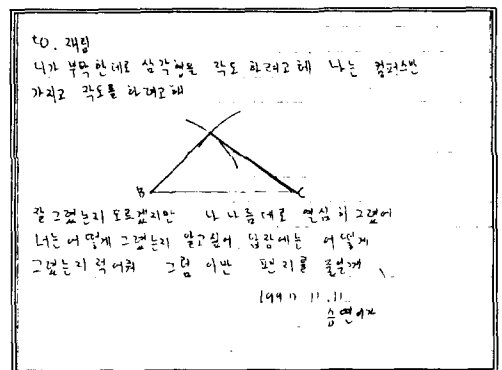 to. 재림
니가 부탁한데로 삼각형을 작도 하려고해 나는 컴퍼스만
가지고 작도를 하려고해
B C
잘 그렸는지 모르겠지만 나 나름대로 열심히 그렸어
너는 어떻게 그렸는지 알고싶어 답장에는 어떻게
그렸는지 적어줘 그럼 이만 편지를 줄일께
1997 11.11
승연이가